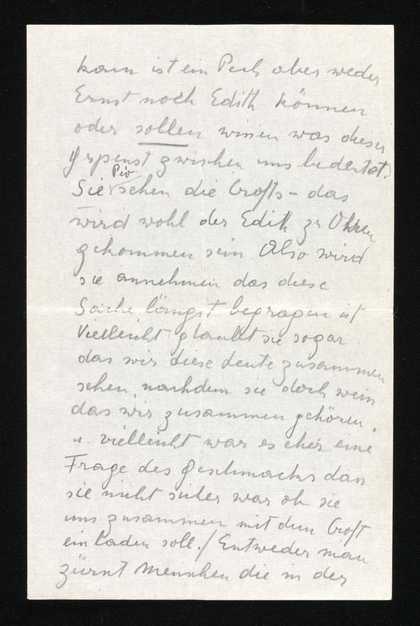 kann ist ein Pech aber weder
Ernst noch Edith können
oder sollen wissen was dieses
Gespenst zwischen uns bedeutet.
Sie sehen die Crofts – das
wird wohl der Edith zu Ohren
gekommen sein Also wird
sie annehmen das diese
Sache längst begraben ist
Vielleicht glaubt sie sogar
das wir diese Leute zusammen
sehen, nachdem sie doch weis
das wir zusammen gehören.
u. vielleicht war es eher eine
Frage des Geschmacks das
sie nicht sicher war ob sie
uns zusammen mit dem Croft
einladen soll. / Entweder man
zürnt Menschen die in der